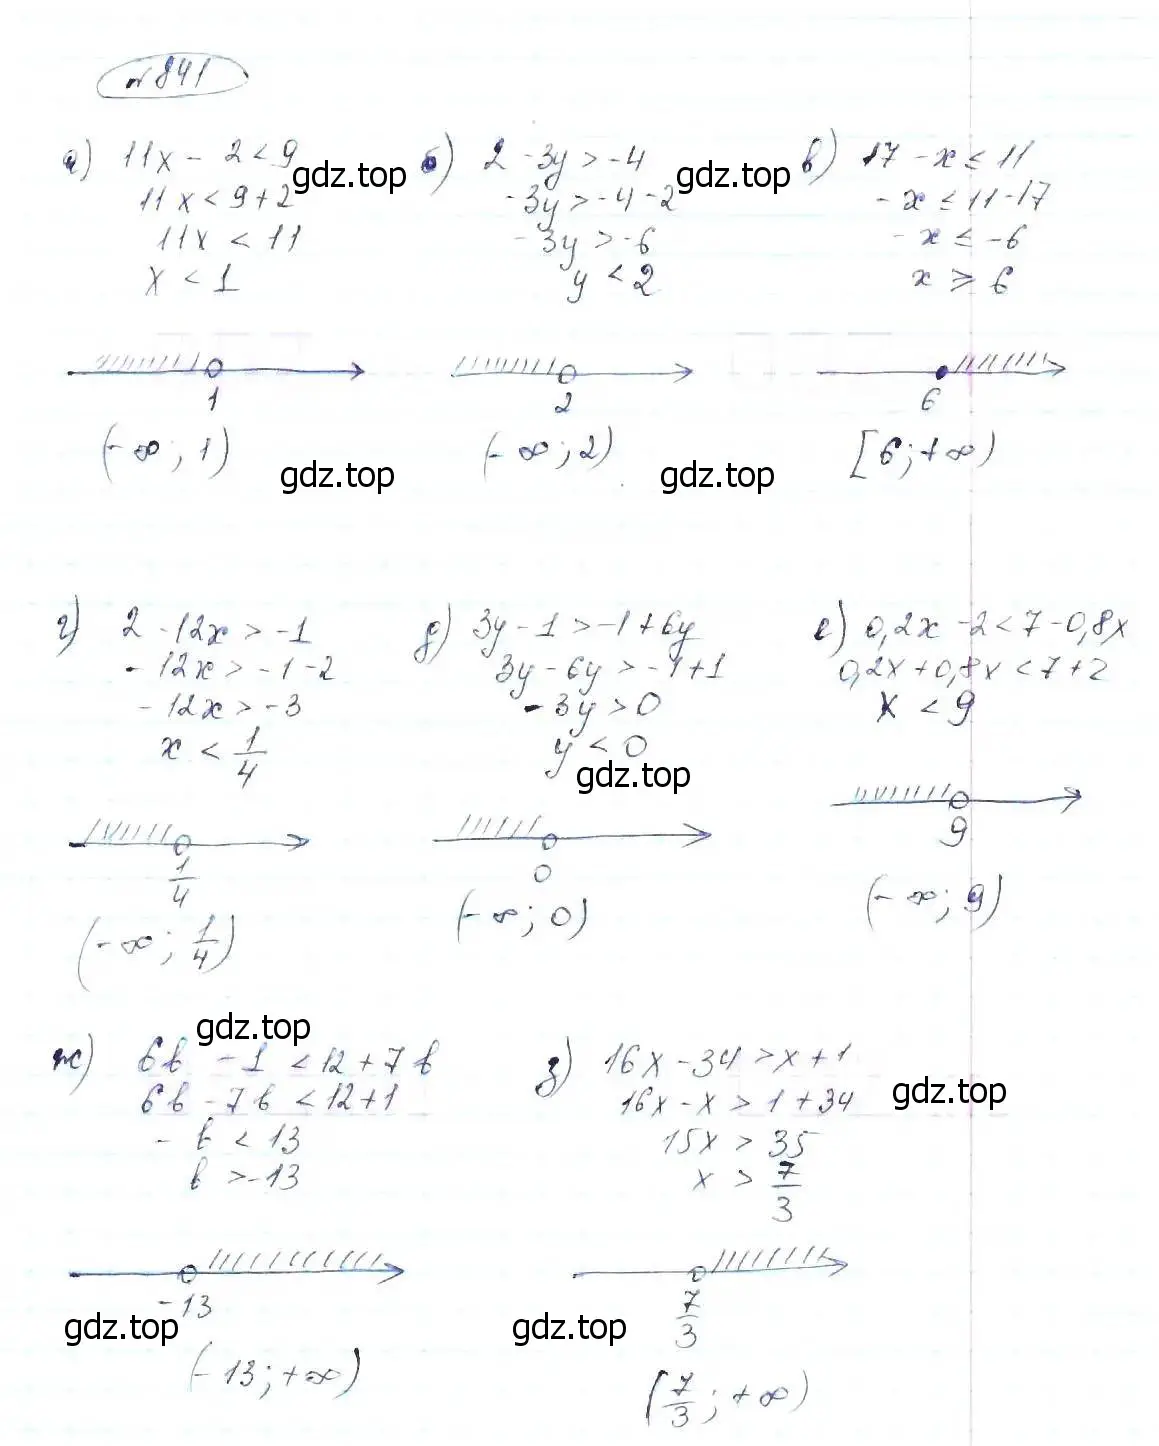 № 841
а) 11x - 2 < 9
11x < 9 + 2
11x < 11
x < 1
1
(-∞; 1)
gdz.top
б) 2 - 3y > -4
-3y > -4 - 2
-3y > -6
y < 2
2
(-∞; 2)
gdz.top
в) 17 - x ≤ 11
-x ≤ 11 - 17
-x ≤ -6
x ≥ 6
6
[6; +∞)
gdz.top
gdz.top
г) 2 - 12x > -1
-12x > -1 - 2
-12x > -3
x < 1/4
1/4
(-∞; 1/4)
д) 3y - 1 > -1 + 6y
3y - 6y > -1 + 1
-3y > 0
y < 0
gdz.top
0
(-∞; 0)
е) 0,2x - 2 < 7 - 0,8x
0,2x + 0,8x < 7 + 2
x < 9
9
(-∞; 9)
gdz.top
ж) 6b - 1 < 12 + 7b
6b - 7b < 12 + 1
-b < 13
b > -13
-13
gdz.top
(-13; +∞)
з) 16x - 34 > x + 1
gdz.top
16x - x > 1 + 34
15x > 35
x > 7/3
7/3
gdz.top
(7/3; +∞)